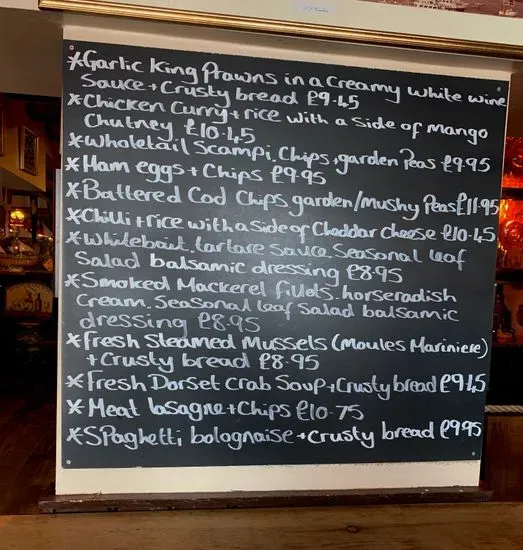 *Garlic King Prawns in a Creamy white wine
Sauce + Crusty bread £9.45
*Chicken Curry + rice with a Side of mango
Chutney £10.45
*Wholetail Scampi. Chips + garden Peas £9.95
*Ham eggs + Chips £9.95
*Battered Cod Chips garden/mushy Peas £11.95
*Chilli + rice with a side of Cheddar cheese £10.45
*Whitebait tartare sauce Seasonal leaf
Salad balsamic dressing £8.95
*Smoked Mackerel fillets. horseradish
Cream. Seasonal leaf Salad balsamic
dressing £8.95
*Fresh Steamed Mussels (Moules Mariniere)
+ Crusty bread £8.95
*Fresh Dorset Crab Soup + Crusty bread £9.45
*Meat lasagne + Chips £10.75
*Spaghetti bolognaise + Crusty bread £9.95